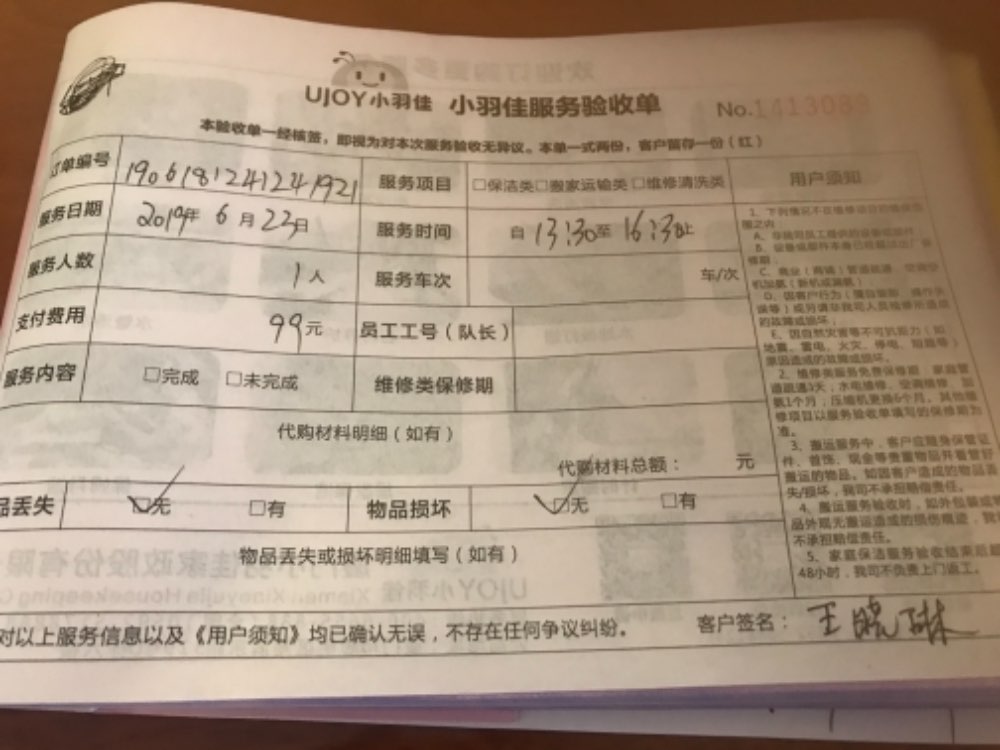 UJOY小羽佳 小羽佳服务验收单 No.1413089
本验收单一经核签，即视为对本次服务验收无异议。本单一式两份，客户留存一份（红）
订单编号 1906181241241921 服务项目 □保洁类□搬家运输类□维修清洗类 用户须知
服务日期 2019年 6 月 22日 服务时间 自 13:30至 16:30止
服务人数 1 人 服务车次 车/次
支付费用 99元 员工工号（队长）
服务内容 □完成 □未完成 维修类保修期
代购材料明细（如有）
代购材料总额： 元
品丢失 ☑无 □有 物品损坏 ☑无 □有
物品丢失或损坏明细填写（如有）
对以上服务信息以及《用户须知》均已确认无误，不存在任何争议纠纷。 客户签名：王晓琳
1、下列情况不在维修项目的维保范
围之内：
A、非我司员工提供的设备或部件
B、设备或部件本身已经超过出厂保
修期；
C、商业（商铺）管道疏通、空调空
机加氨（新机或漏氨）
D、因客户行为
的故障或损坏；
E、因自然灾害等不可抗能力（如
地震、雷电、火灾、停电、短路等）
原因造成的故障或损坏。
2、维修类服务免费保修期：家庭管
道疏通3天，水电维修、空调维修、加
氨1个月；压缩机更换6个月。其他维
修项目以服务验收单填写的保修期为
准。
3、搬运服务中，客户应随身保管证
件、首饰、现金等贵重物品并看管好
搬运的物品。如因客户造成的物品丢
失/损坏，我司不承担赔偿责任。
4、搬运服务验收时，如外包装或物
品外观无搬运造成的损伤痕迹，我
不承担赔偿责任。
5、家庭保洁服务验收结束后超
48小时，我司不负责上门返工。